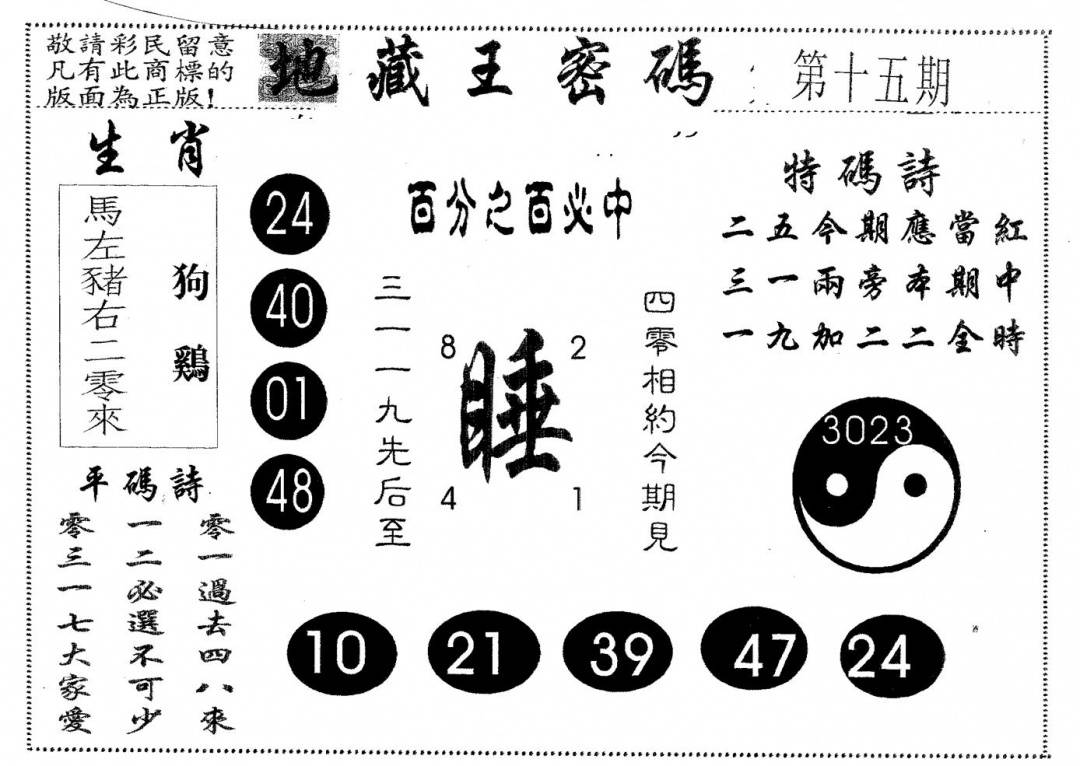 敬請彩民留意
凡有此商標的
版面為正版！
地藏王密碼
第十五期
生肖
馬左豬右二零來
狗鷄
24
40
01
48
百分之百必中
三一一九先后至
8
2
睡
4
1
四零相約今期見
特碼詩
二五今期應當紅
三一兩旁本期中
一九加二二全時
3023
平碼詩
零一過去四八來
一二必選不可少
零三一七大家愛
10
21
39
47
24